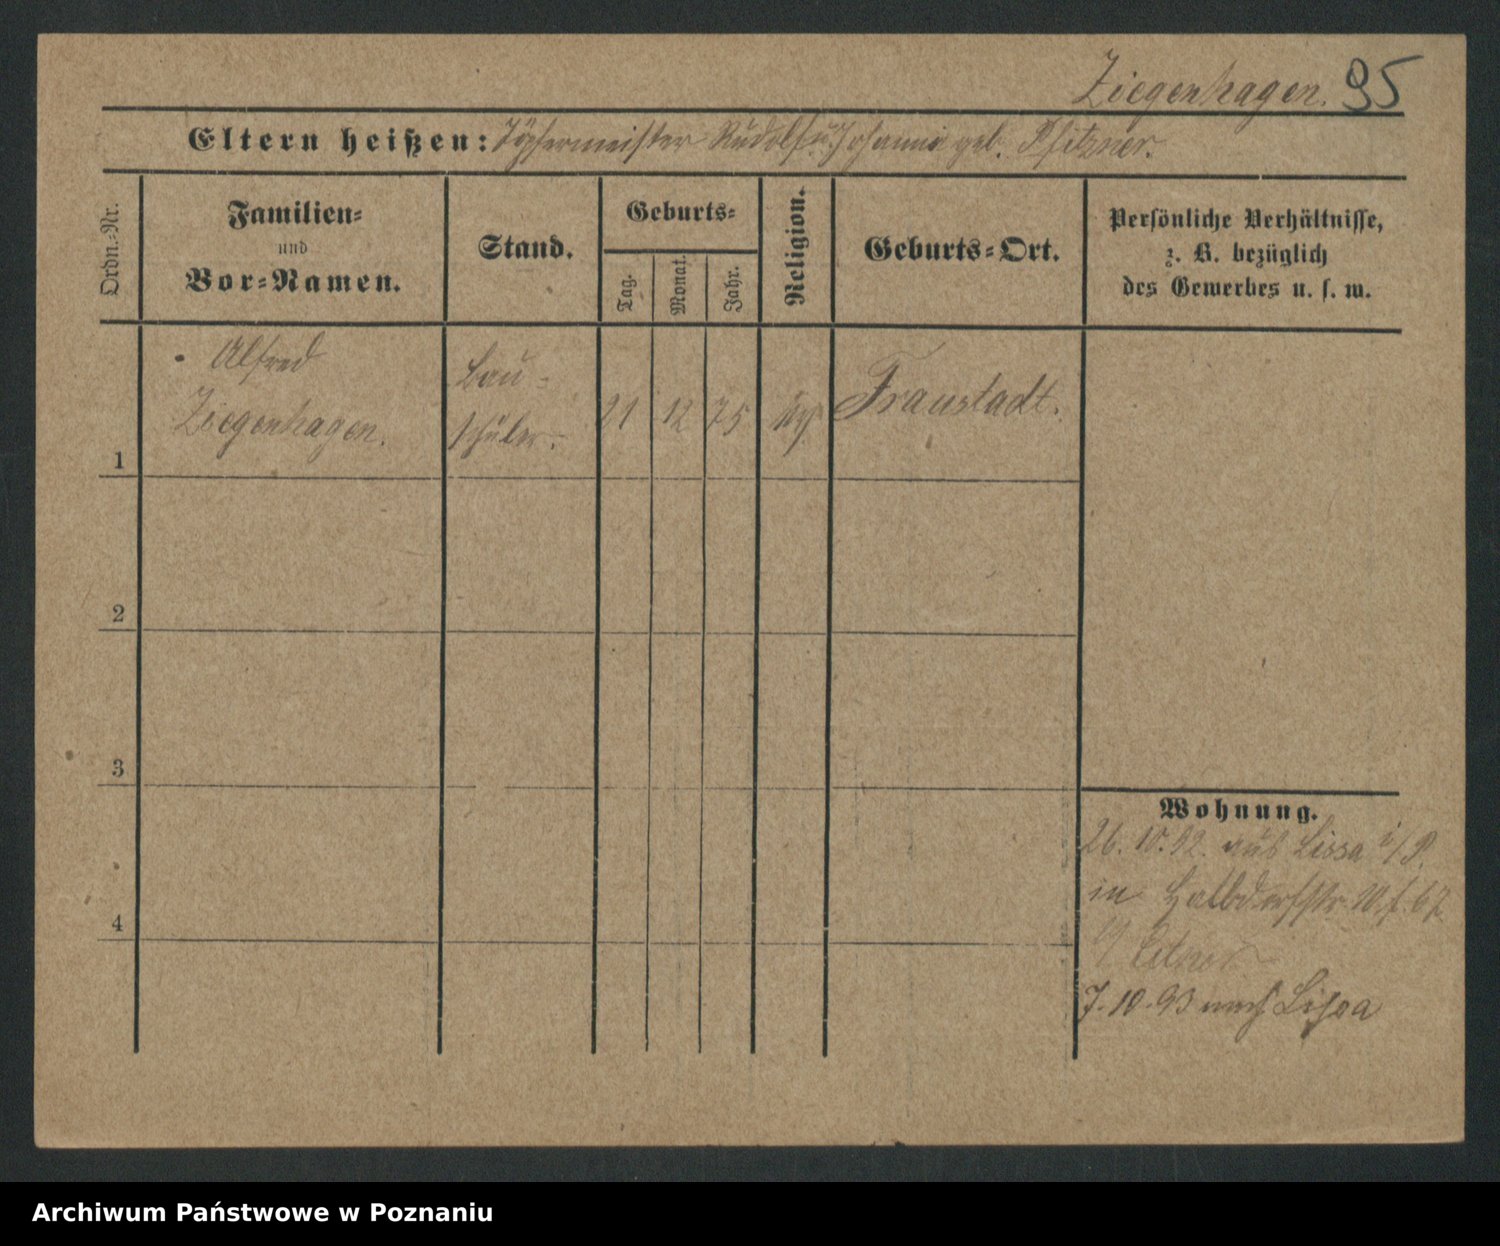 Ziegenhagen. 95
Eltern heißen: Töpfermeister Rudolf u Johanna geb. Pfitzner.
Ordn.-Nr.
Familien-
und
Vor-Namen.
Stand.
Geburts-
Tag.
Monat.
Jahr.
Religion.
Geburts-Ort.
Persönliche Verhältnisse,
z. B. bezüglich
des Gewerbes u. s. w.
1
Alfred
Ziegenhagen.
Bau-
schüler.
21 12 75
ev
Fraustadt.
2
3
4
Wohnung.
26. 10. 92. aus Lissa i/P.
in Halbdorfstr.
7. 10. 93 nach Lissa
Archiwum Państwowe w Poznaniu